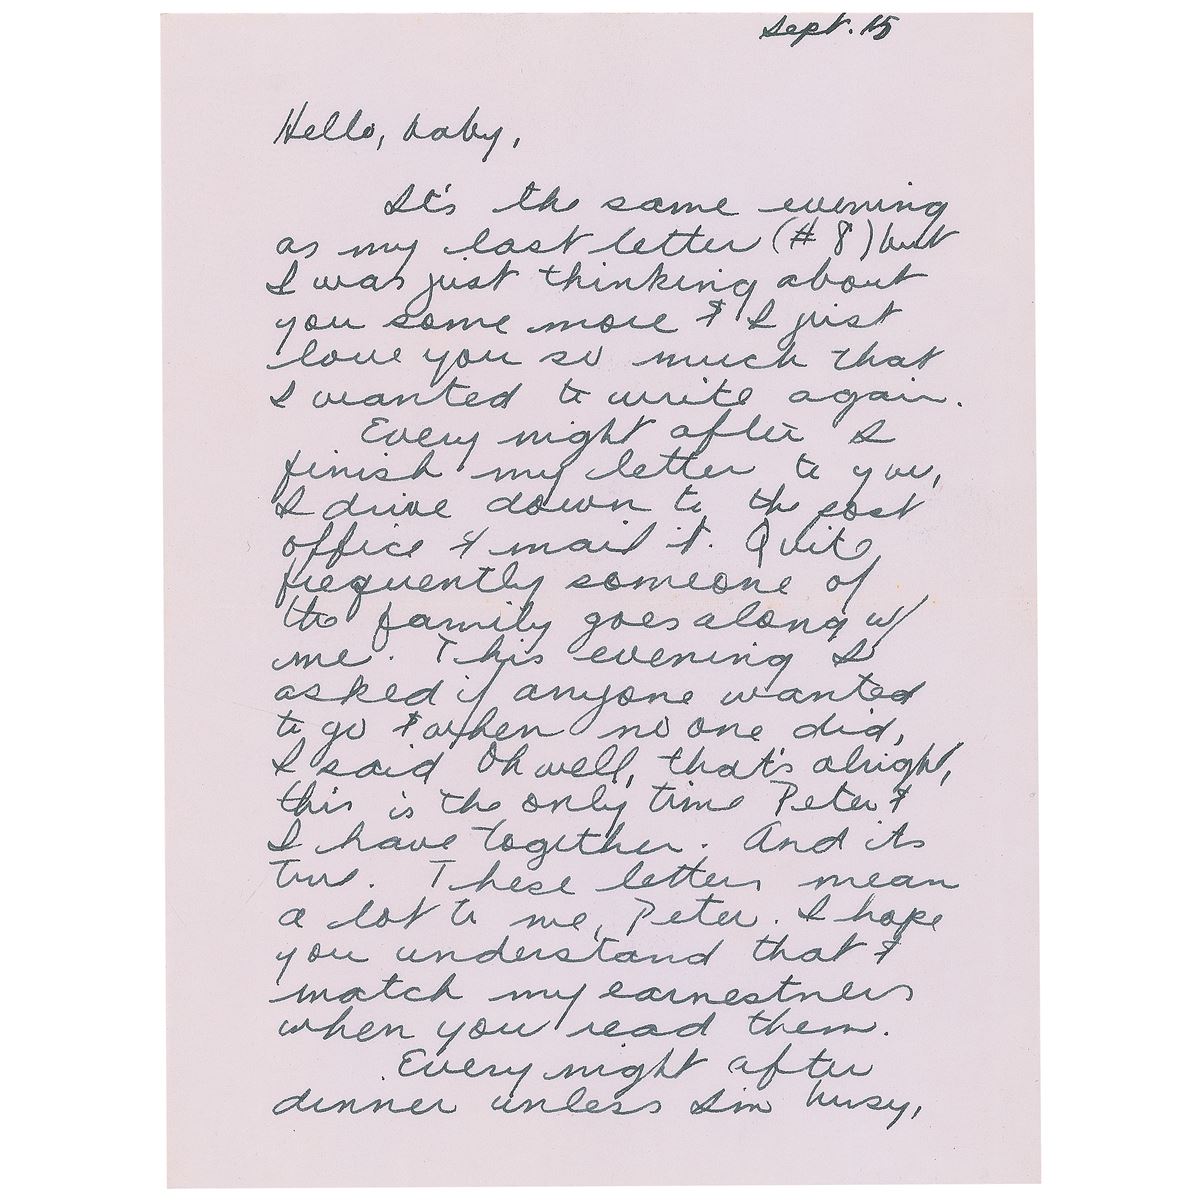 Sept. 15
Hello, baby,
It's the same evening
as my last letter (#8) but
I was just thinking about
you some more & I just
love you so much that
I wanted to write again.
Every night after I
finish my letter to you,
I drive down to the post
office & mail it. Quite
frequently someone of
the family goes along w/
me. This evening I
asked if anyone wanted
to go & when no one did,
I said Oh well, that's alright,
this is the only time Peter &
I have together. And its
true. These letters mean
a lot to me, Peter. I hope
you understand that &
match my earnestness
when you read them.
Every night after
dinner unless I'm busy,